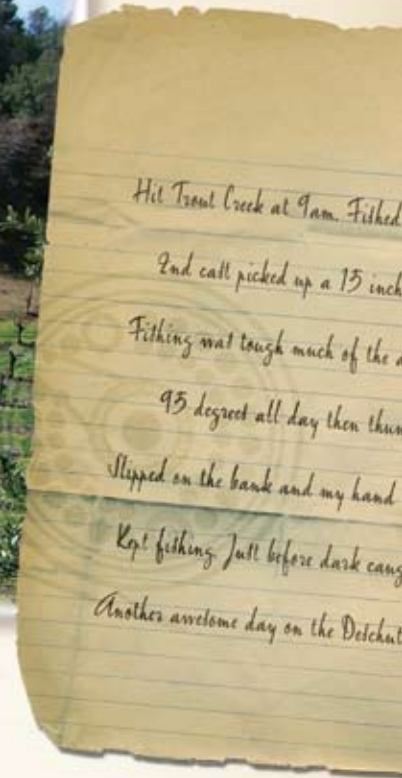 Hit Trout Creek at 9am. Fished
2nd cast picked up a 15 inch
Fishing was tough much of the d
95 degrees all day then thun
Slipped on the bank and my hand
Kept fishing. Just before dark caug
Another awesome day on the Deschut